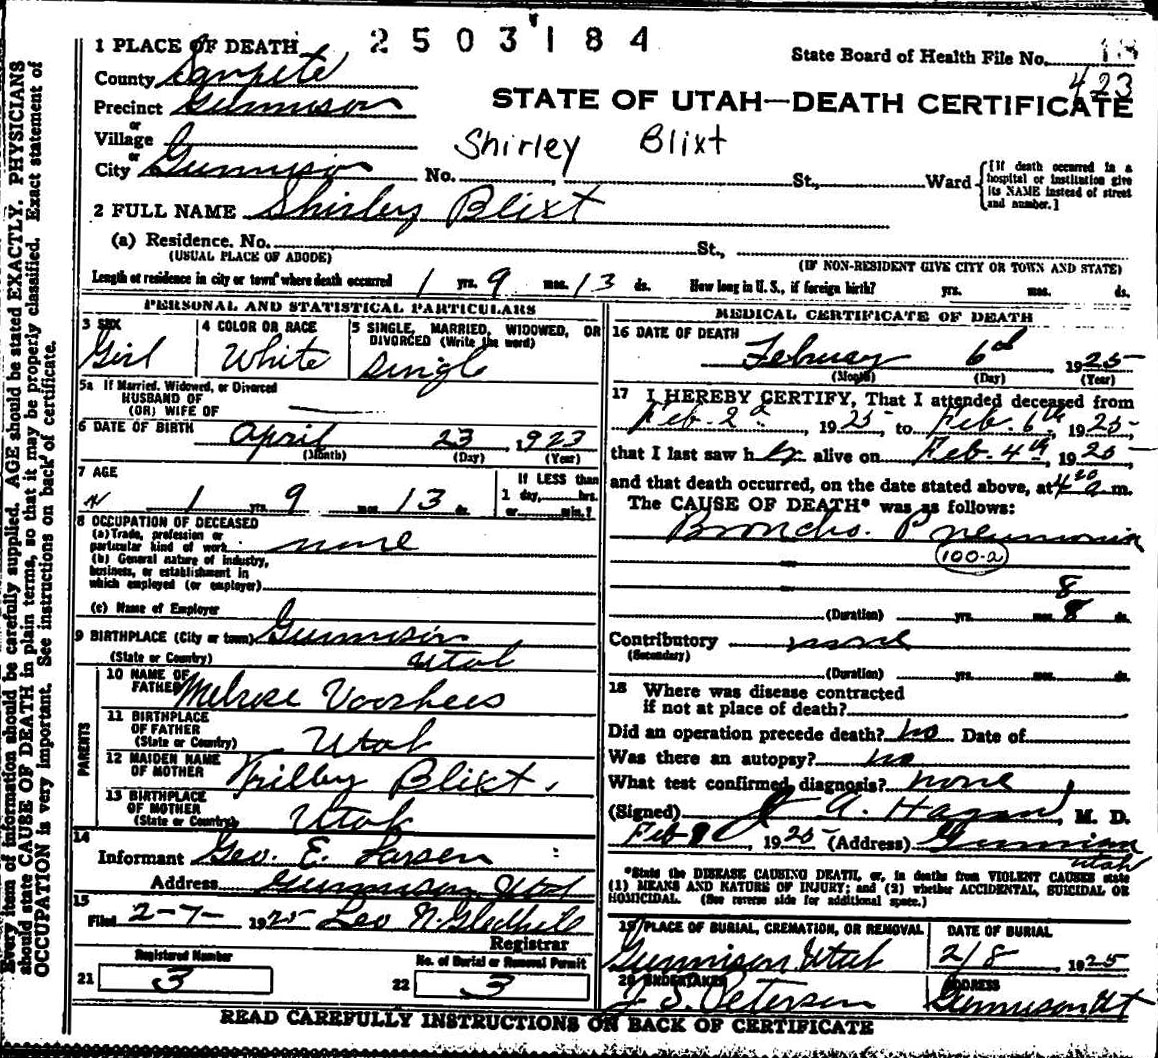 2503184
State Board of Health File No. 18
423
STATE OF UTAH—DEATH CERTIFICATE
1 PLACE OF DEATH
County Sanpete
Precinct Gunnison
or
Village
or
City Gunnison No. St., Ward
[If death occurred in a hospital or institution give its NAME instead of street and number.]
Shirley Blixt
2 FULL NAME Shirley Blixt
(a) Residence. No. St.,
(USUAL PLACE OF ABODE) (IF NON-RESIDENT GIVE CITY OR TOWN AND STATE)
Length of residence in city or town where death occurred 1 yrs. 9 mos. 13 ds. How long in U. S., if foreign birth? yrs. mos. ds.
PERSONAL AND STATISTICAL PARTICULARS
3 SEX
Girl
4 COLOR OR RACE
White
5 SINGLE, MARRIED, WIDOWED, OR DIVORCED (Write the word)
Single
5a If Married, Widowed, or Divorced
HUSBAND OF
(OR) WIFE OF
6 DATE OF BIRTH April 23, 1923
(Month) (Day) (Year)
7 AGE
1 yrs. 9 mos. 13 ds.
If LESS than
1 day, hrs.
or min.?
8 OCCUPATION OF DECEASED
(a) Trade, profession or
particular kind of work none
(b) General nature of industry,
business, or establishment in
which employed (or employer)
(c) Name of Employer
9 BIRTHPLACE (City or town) Gunnison
(State or Country) Utah
PARENTS
10 NAME OF
FATHER Melrose Voorhees
11 BIRTHPLACE
OF FATHER
(State or Country) Utah
12 MAIDEN NAME
OF MOTHER Trilby Blixt.
13 BIRTHPLACE
OF MOTHER
(State or Country) Utah
14
Informant Geo. E. Larsen
Address Gunnison Utah
15
Filed 2-7- 1925 Leo N. Gledhill
Registrar
Registered Number
21 3
No. of Burial or Removal Permit
22 3
MEDICAL CERTIFICATE OF DEATH
16 DATE OF DEATH
February 6th 1925
(Month) (Day) (Year)
17 I HEREBY CERTIFY, That I attended deceased from
Feb. 2d, 1925, to Feb. 6th, 1925,
that I last saw her alive on Feb. 4th, 1925
and that death occurred, on the date stated above, at 4 20 a m.
The CAUSE OF DEATH* was as follows:
Broncho. Pneumonia
100-2
8
(Duration) yrs. mos. 8 ds.
Contributory none
(Secondary)
(Duration) yrs. mos. ds.
18 Where was disease contracted
if not at place of death?
Did an operation precede death? no Date of
Was there an autopsy? no
What test confirmed diagnosis? none
(Signed) J A. Hagan, M. D.
Feb 8, 1925 (Address) Gunnison
Utah
*State the DISEASE CAUSING DEATH, or, in deaths from VIOLENT CAUSES state
(1) MEANS AND NATURE OF INJURY; and (2) whether ACCIDENTAL, SUICIDAL OR
HOMICIDAL. (See reverse side for additional space.)
19 PLACE OF BURIAL, CREMATION, OR REMOVAL
Gunnison Utah
DATE OF BURIAL
2/8, 1925
20 UNDERTAKER
J S. Petersen
ADDRESS
Gunnison Ut
READ CAREFULLY INSTRUCTIONS ON BACK OF CERTIFICATE
Every item of information should be carefully supplied. AGE should be stated EXACTLY. PHYSICIANS
should state CAUSE OF DEATH in plain terms, so that it may be properly classified. Exact statement of
OCCUPATION is very important. See instructions on back of certificate.